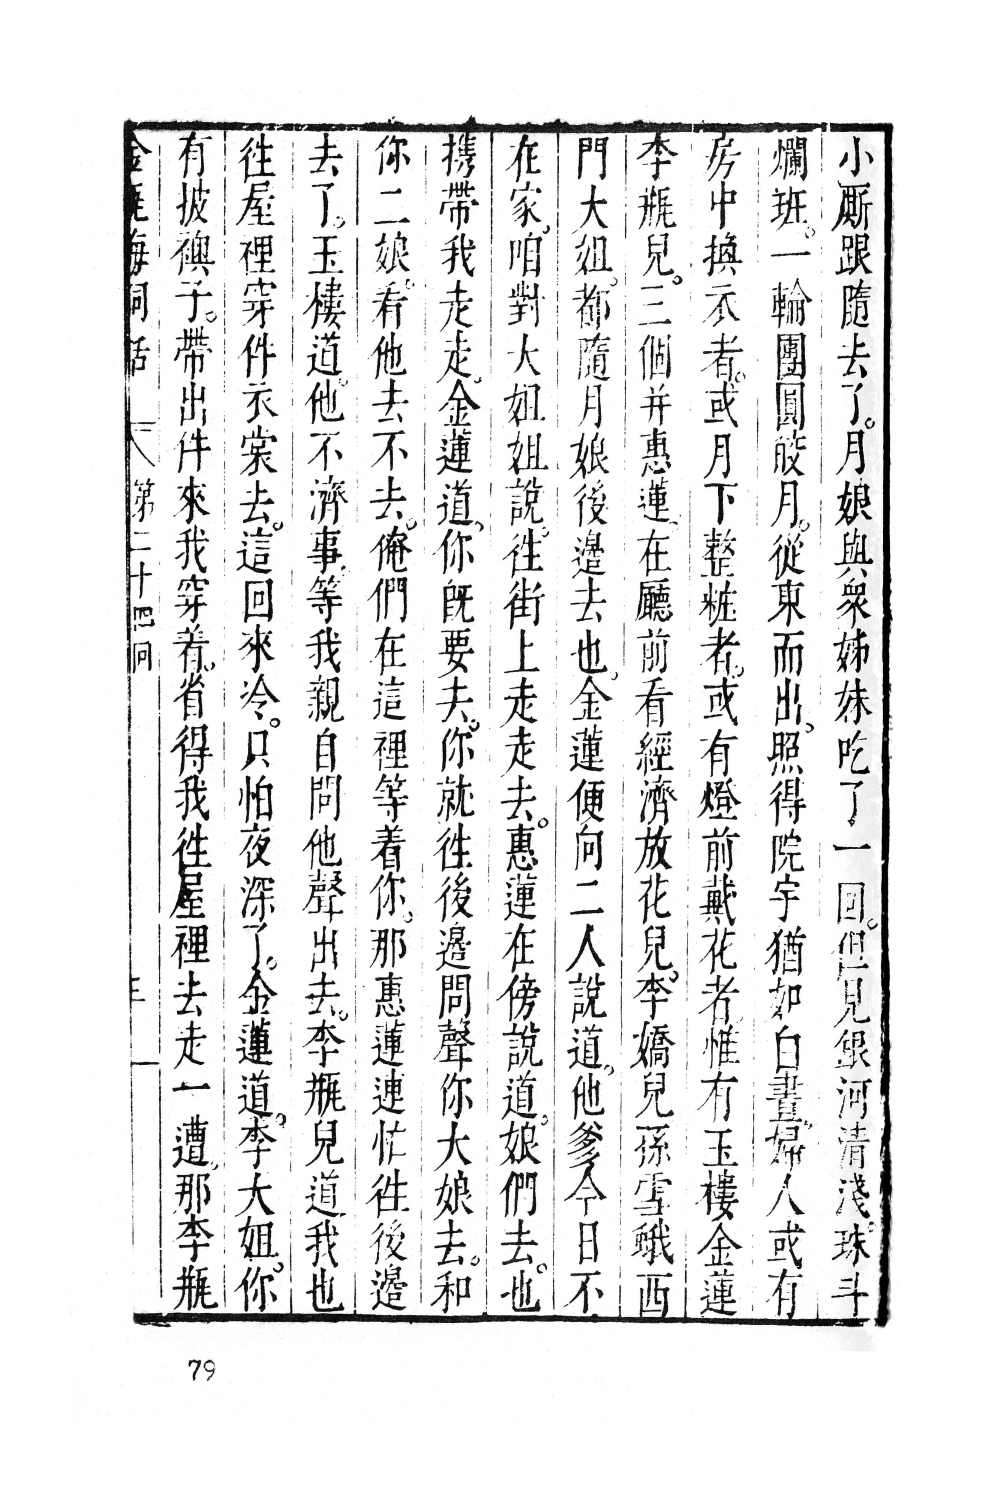 小厮跟隨去了。月娘與衆姊妹吃了一回。但見銀河清淺。珠斗
爛班。一輪團圓皎月。從東而出。照得院宇猶如白晝。婦人或有
房中換衣者。或月下整粧者。或有燈前戴花者。惟有玉樓金蓮
李瓶兒。三個并惠蓮。在廳前看經濟放花兒。李嬌兒孫雪蛾西
門大姐。都隨月娘後邊去也。金蓮便向二人說道。他爹今日不
在家。咱對大姐姐說。徃街上走走去。惠蓮在傍說道。娘們去。也
携帶我走走。金蓮道。你既要去。你就徃後邊問聲你大娘去。和
你二娘。看他去不去。俺們在這裡等着你。那惠蓮連忙徃後邊
去了。玉樓道。他不濟事。等我親自問他聲出去。李瓶兒道。我也
徃屋裡穿件衣裳去。這回來冷。只怕夜深了。金蓮道。李大姐。你
有披襖子。帶出件來我穿着。省得我徃屋裡去走一遭。那李瓶
金瓶梅詞話 第二十四囘 三
79